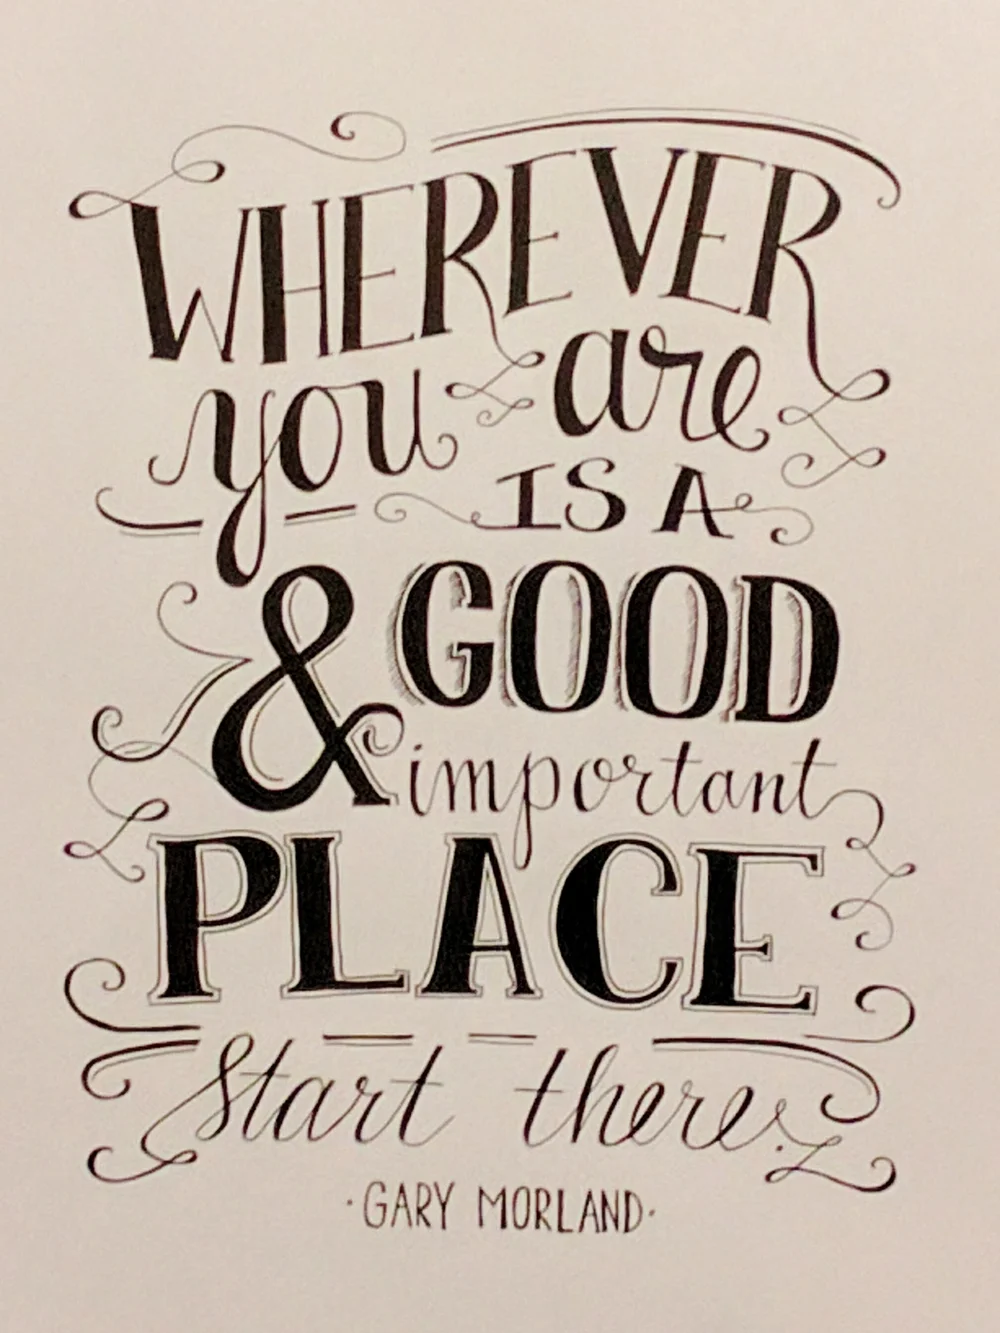 WHEREVER
you are
IS A
& GOOD
important
PLACE
Start there.
·GARY MORLAND·